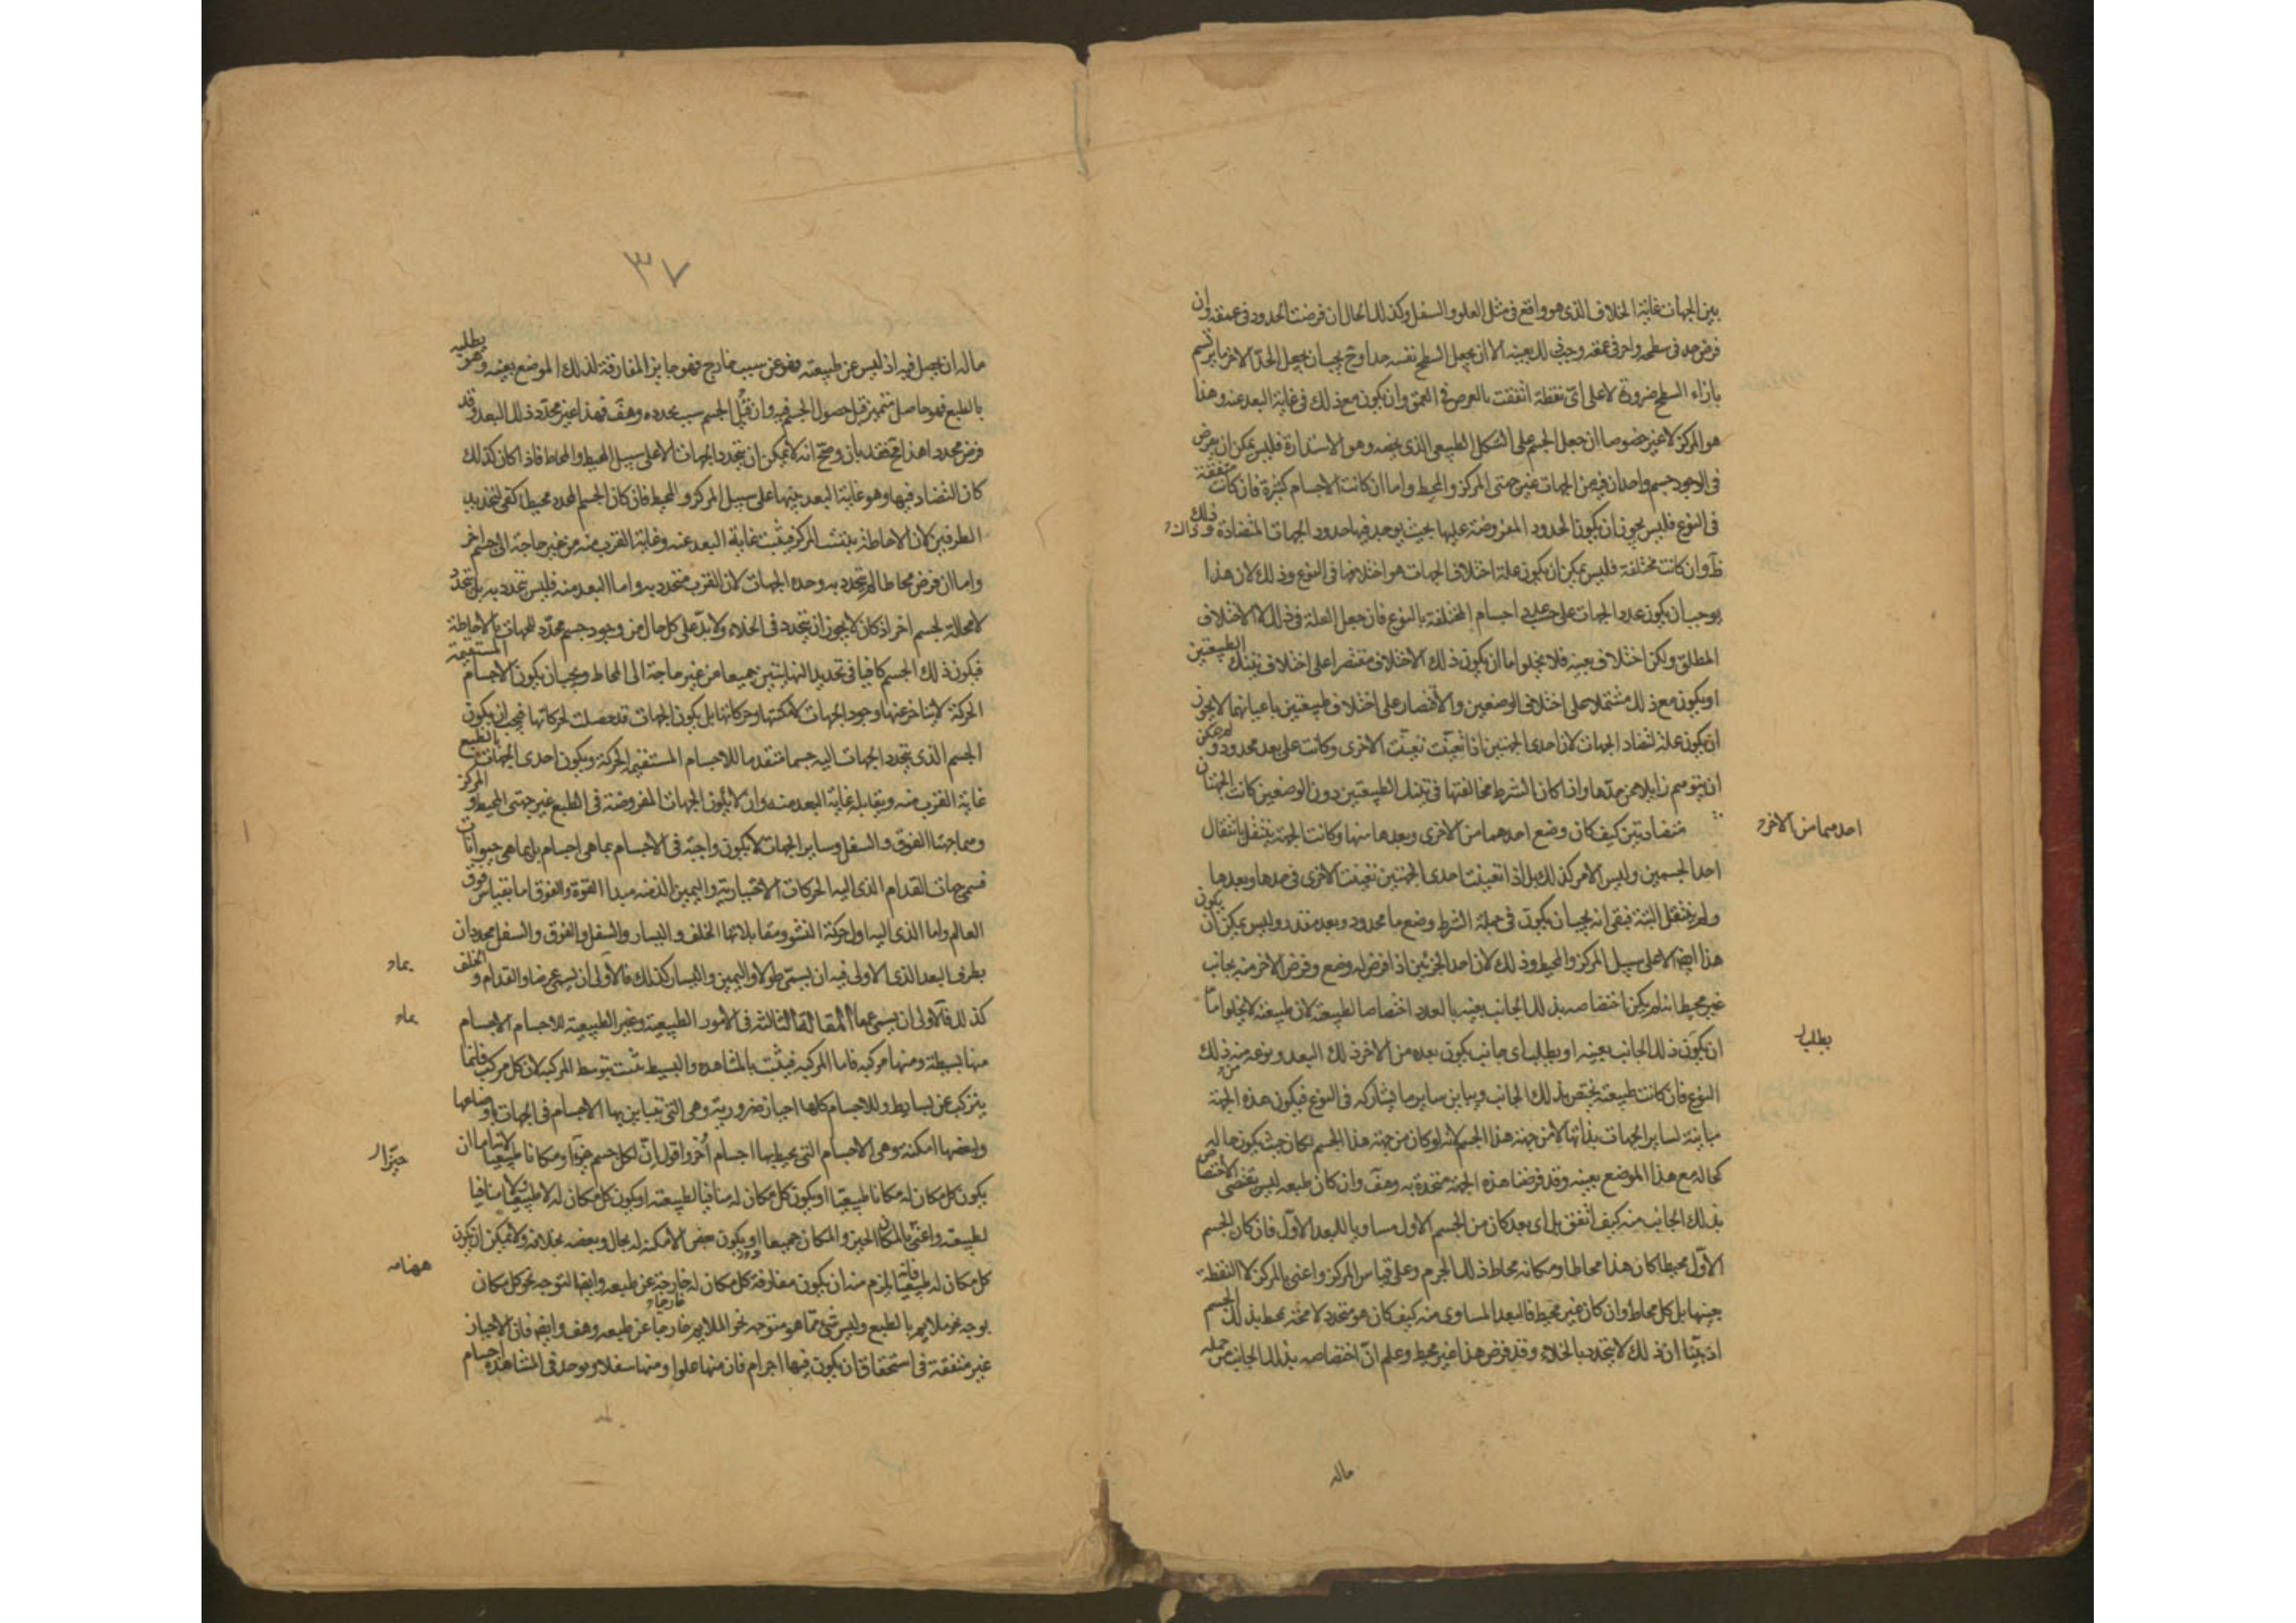 بين الجهات غاية الخلاف الذى هو واقع فى مثل العلو والسفل وكذلك الحال ان فرضت الحدود فى عمقه وان
فرض حد فى سطحه واخر فى عمقه وجب ذلك بعينه الا ان يجعل السطح نفسه حدا وح يجب ان يجعل الحد الاخر ما يرتسم
بازاء السطح ضرورة لا على اى نقطة اتفقت بالعرض فى العمق وان يكون مع ذلك فى غاية البعد عنه وهذا
هو المركز لا غير خصوصا ان جعل الجسم على الشكل الطبيعى الذى يخصه وهو الاستدارة فليس يمكن ان يفرض
فى الوجود جسم واحد ان فيه من الجهات غير جهتى المركز والمحيط واما ان كانت الاجسام كثيرة فان كانت متفقة
فى النوع فليس يجوز ان يكون الحدود المفروضة عليها بحيث يوجد فيها حدود الجهات المتضادة وذلك
ظ وان كانت مختلفة فليس يمكن ان يكون علة اختلاف الجهات هو اختلافها فى النوع وذلك لان هذا
يوجب ان يكون عدد الجهات على حسب عدد اجسام المختلفة بالنوع فان جعل العلة فى ذلك لا الاختلاف
المطلق ولكن اختلاف بعينه فلا يخلوا اما ان يكون ذلك الاختلاف مقتصرا على اختلاف تينك الطبيعتين
او يكون مع ذلك مشتملا على اختلاف الوضعين والاقتصار على اختلاف طبيعتين باعيانهما لا يجوز
ان يكون علة لتضاد الجهات لان احدى الجهتين اذا تعينت تعينت الاخرى وكانت على بعد محدود ولم يمكن
ان يتوهم زايلا عن حدها واذا كان الشرط مخالفتها فى تينك الطبيعتين دون الوضعين كانت الجهتان
متضادتين كيف كان وضع احدهما من الاخرى وبعدها منها وكانت الجهة ينتقل بانتقال
احدهما من الاخر
احد الجسمين وليس الامر كذلك بل اذا تعينت احدى الجهتين تعينت الاخرى فى حدها وبعدها
ولم ينتقل البتة فبقى انه يجب ان يكون فى جملة الشرط وضع ما محدود وبعد مقدر وليس يمكن ان يكون
هذا ايضا الا على سبيل المركز والمحيط وذلك لان احد الجزئين اذا فرض له وضع وفرض الاخر منه بجانب
غير محيط انه لم يكن اختصاصه بذلك الجانب بعينه بالعدد اختصاصا لطبيعته لان طبيعته لا يخلوا اما
ان يكون ذلك الجانب بعينه او يطلب اى جانب يكون بعده من الاخر ذلك البعد ونوعه منه ذلك
يطلب
النوع فان كانت طبيعته يختص بذلك الجانب ويباين ساير ما يشاركه فى النوع فيكون هذه الجهة
مباينة لساير الجهات بذاتها لا من جهة هذا الجسم لانه لو كان من جهة هذا الجسم لكان حيث يكون حاله
كحاله مع هذا الموضع بعينه وقد فرضنا هذه الجهة متحددة به وهف وان كان طبعه ليس تقتضى الاختصاص
بذلك الجانب منه كيف اتفق بل اى بعد كان من الجسم الاول مساويا للبعد الاول فان كان الجسم
الاول محيطا كان هذا محاطا ومكانه محاط ذلك الجرم وعلى قياس المركز واعنى بالمركز لا النقطة
بعينها بل كل محاط وان كان غير محيط فالبعد المساوى منه كيف كان هو متحدد لا محة بمحيط بذلك الجسم
اذ بينا ان ذلك لا يتحدد بالخلاء وقد فرض هذا غير محيط وعلم ان اختصاصه بذلك الجانب من جملة
ماله
٣٧
ماله ان يحصل فيه اذ ليس عن طبيعته فهو عن سبب خارج فهو جايز المفارقة لذلك الموضع بعينه وهو يطلبه
بالطبع فهو حاصل متميز قبل حصول الجسم فيه وان قبل الجسم سبب يحدده وهف فهذا غير محدد ذلك البعد وقد
فرض محددا هذا خلف فقد بان وصح انه لا يمكن ان يتحدد الجهات الا على سبيل المحيط والمحاط فاذا كان كذلك
كان التضاد فيها وهو غاية البعد بينها على سبيل المركز والمحيط فان كان الجسم المحدد محيطا كفى لتحديد
الطرفين لان الاحاطة يثبت المركز فيثبت غاية البعد عنه وغاية القرب منه من غير حاجة الى جسم اخر
واما ان فرض محاطا لم يتحدد به وحده الجهات لان القرب متحدد به واما البعد منه فليس يتحدد به بل يتحدد
لا محالة لجسم اخر اذ كان لا يجوز ان يتحدد فى الخلاء ولا بد على كل حال من وجود جسم محدد للجهات بالاحاطة
فيكون ذلك الجسم كافيا فى تحديد النهايتين جميعا من غير حاجة الى المحاط ويجب ان يكون الاجسام المستقيمة
الحركة لا يتاخر عنها وجود الجهات لامكنتها وحركاتها بل يكون الجهات قد حصلت لحركاتها فيجب ان يكون
الجسم الذى يتحدد الجهات اليه جسما متقدما للاجسام المستقيمة الحركة ويكون احدى الجهات بالطبع
غاية القرب منه ويقابله غاية البعد منه وان لا يكون الجهات المفروضة فى الطبع غير جهتى المحيط والمركز
وهما جهتا الفوق والسفل وساير الجهات لا يكون واجبة فى الاجسام بما هى اجسام بل بما هى حيوانات
فسمى جهات القدام الذى اليه الحركات الاختيارية واليمين الذى منه مبدا القوة والفوق اما بقياس فوق
العالم واما الذى اليه اول حركة النشو ومقابلاتها الخلف واليسار والسفل والفوق والسفل محددان
بطرفى البعد الذى الاولى فيه ان يسمى طولا واليمين واليسار كذلك فالاولى ان يسمى عرضا والقدام والخلف
بماد
كذلك فالاولى ان يسمى عمقا المقالة الثالثة فى الامور الطبيعية وغير الطبيعية للاجسام الاجسام
بماد
منها بسيطة ومنها مركبة فاما المركبة فيثبت بالمشاهدة والبسيط يثبت بتوسط المركبة لان كل مركب فانما
يتركب عن بسايط وللاجسام كلها احياز ضرورية وهى التى تتباين بها الاجسام فى الجهات باوضاعها
ولبعضها امكنة وهى الاجسام التى يحيط بها اجسام أخر واقول ان لكل جسم حيزا ومكانا طبيعيا لانه اما ان
حيزا
يكون كل مكان له مكانا طبيعيا او يكون كل مكان له منافيا لطبيعته او يكون كل مكان له لا طبيعيا ولا منافيا
لطبيعته واعنى بالمكان الحيز والمكان جميعا او يكون بعض الامكنة له بحال وبعضه بخلافه ولا يمكن ان يكون
كل مكان له طبيعيا فانه يلزم منه ان يكون مفارقة كل مكان له خارجة عن طبعه وايضا التوجه نحو كل مكان
يوجه نحو ملايم بالطبع وليس شىء مما هو متوجه نحو الملايم خارجا عن طبعه وهف وايضا فان الاحياز
غير متفقة فى استحقاق ان يكون فيها اجرام فان منها علوا ومنها سفلا ويوجد فى المشاهدة اجسام